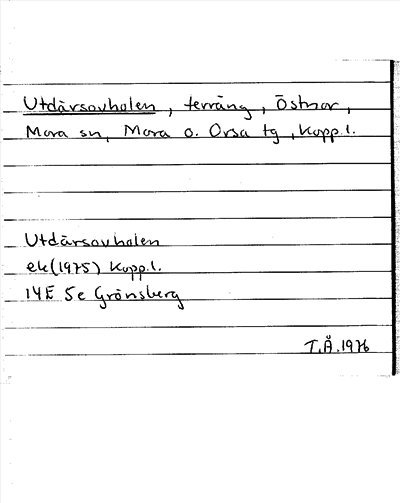 Utdärsovholen, terräng, Östnor,
Mora sn, Mora o. Orsa tg, Kopp.l.
Utdärsovholen
ek (1975) Kopp.l.
14E 5e Grönsberg
T.Å. 1976